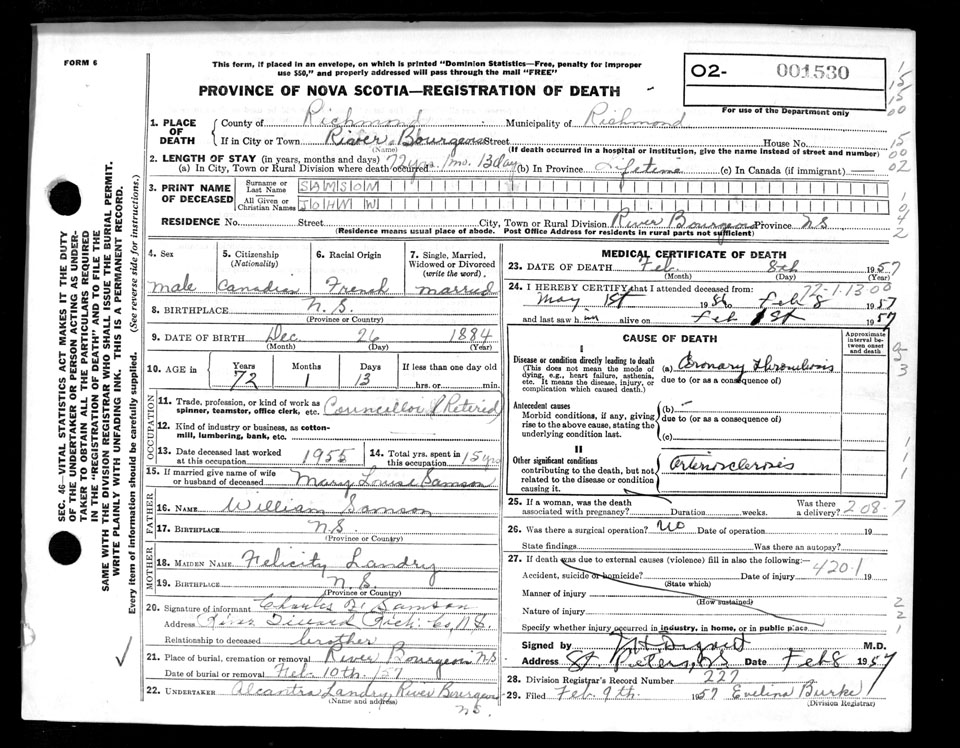 FORM 6
This form, if placed in an envelope, on which is printed "Dominion Statistics—Free, penalty for improper
use $50," and properly addressed will pass through the mail "FREE"
PROVINCE OF NOVA SCOTIA—REGISTRATION OF DEATH
O2- 001530
For use of the Department only
1. PLACE OF DEATH
County of Richmond Municipality of Richmond
If in City or Town River Bourgeois Street House No.
(Name) (If death occurred in a hospital or institution, give the name instead of street and number)
2. LENGTH OF STAY (in years, months and days) 72 yrs. 1 mo. 13 day
(a) In City, Town or Rural Division where death occurred (b) In Province Lifetime (c) In Canada (if immigrant)
3. PRINT NAME OF DECEASED
Surname or Last Name SAMSON
All Given or Christian Names JOHN W
RESIDENCE No. Street City, Town or Rural Division River Bourgeois Province NS
(Residence means usual place of abode. Post Office Address for residents in rural parts not sufficient)
4. Sex male
5. Citizenship (Nationality) Canadian
6. Racial Origin French
7. Single, Married, Widowed or Divorced (write the word). married
8. BIRTHPLACE N.S.
(Province or Country)
9. DATE OF BIRTH Dec 26 1884
(Month) (Day) (Year)
10. AGE in Years 72 Months 1 Days 13 If less than one day old
hrs. or min.
OCCUPATION
11. Trade, profession, or kind of work as
spinner, teamster, office clerk, etc. Councillor Retired
12. Kind of industry or business, as cotton-
mill, lumbering, bank, etc.
13. Date deceased last worked at this occupation 1955
14. Total yrs. spent in this occupation 15 yrs
15. If married give name of wife
or husband of deceased Mary Louise Samson
FATHER
16. NAME William Samson
17. BIRTHPLACE N.S.
(Province or Country)
MOTHER
18. MAIDEN NAME Felicity Landry
19. BIRTHPLACE N.S
(Province or Country)
20. Signature of informant Charles Samson
Address River Rich. Co, N.S.
Relationship to deceased brother
21. Place of burial, cremation or removal River Bourgeois NS
Date of burial or removal Feb. 10th /57
22. UNDERTAKER Alcantra Landry, River Bourgeois
(Name and address) N.S.
MEDICAL CERTIFICATE OF DEATH
23. DATE OF DEATH Feb. 8th 1957
(Month) (Day) (Year)
72-1-13-00
24. I HEREBY CERTIFY that I attended deceased from:
May 1st 19 to Feb 8 1957
and last saw him alive on Feb 1st 1957
CAUSE OF DEATH
Approximate interval between onset and death
I
Disease or condition directly leading to death
(This does not mean the mode of
dying, e.g., heart failure, asthenia,
etc. It means the disease, injury, or
complication which caused death.)
(a) Coronary Thrombosis
due to (or as a consequence of)
Antecedent causes
Morbid conditions, if any, giving
rise to the above cause, stating the
underlying condition last.
(b) —
due to (or as a consequence of)
(c)
II
Other significant conditions
contributing to the death, but not
related to the disease or condition
causing it.
Arteriosclerosis
25. If a woman, was the death Was there
associated with pregnancy? Duration weeks. a delivery? 208-7
26. Was there a surgical operation? No Date of operation 19
State findings Was there an autopsy?
27. If death was due to external causes (violence) fill in also the following:—
420.1
Accident, suicide or homicide? Date of injury 19
(State which)
Manner of injury
(How sustained)
Nature of injury
Specify whether injury occurred in industry, in home, or in public place
Signed by M.D.
Address St. Peters, NS Date Feb 8 1957
28. Division Registrar's Record Number 227
29. Filed Feb. 9th. 1957 Evelina Burke
(Division Registrar)
SEC. 46—VITAL STATISTICS ACT MAKES IT THE DUTY
OF THE UNDERTAKER OR PERSON ACTING AS UNDER-
TAKER TO OBTAIN ALL THE PARTICULARS REQUIRED
IN THE "REGISTRATION OF DEATH" AND TO FILE THE
SAME WITH THE DIVISION REGISTRAR WHO SHALL ISSUE THE BURIAL PERMIT.
WRITE PLAINLY WITH UNFADING INK. THIS IS A PERMANENT RECORD.
Every item of information should be carefully supplied. (See reverse side for instructions.)